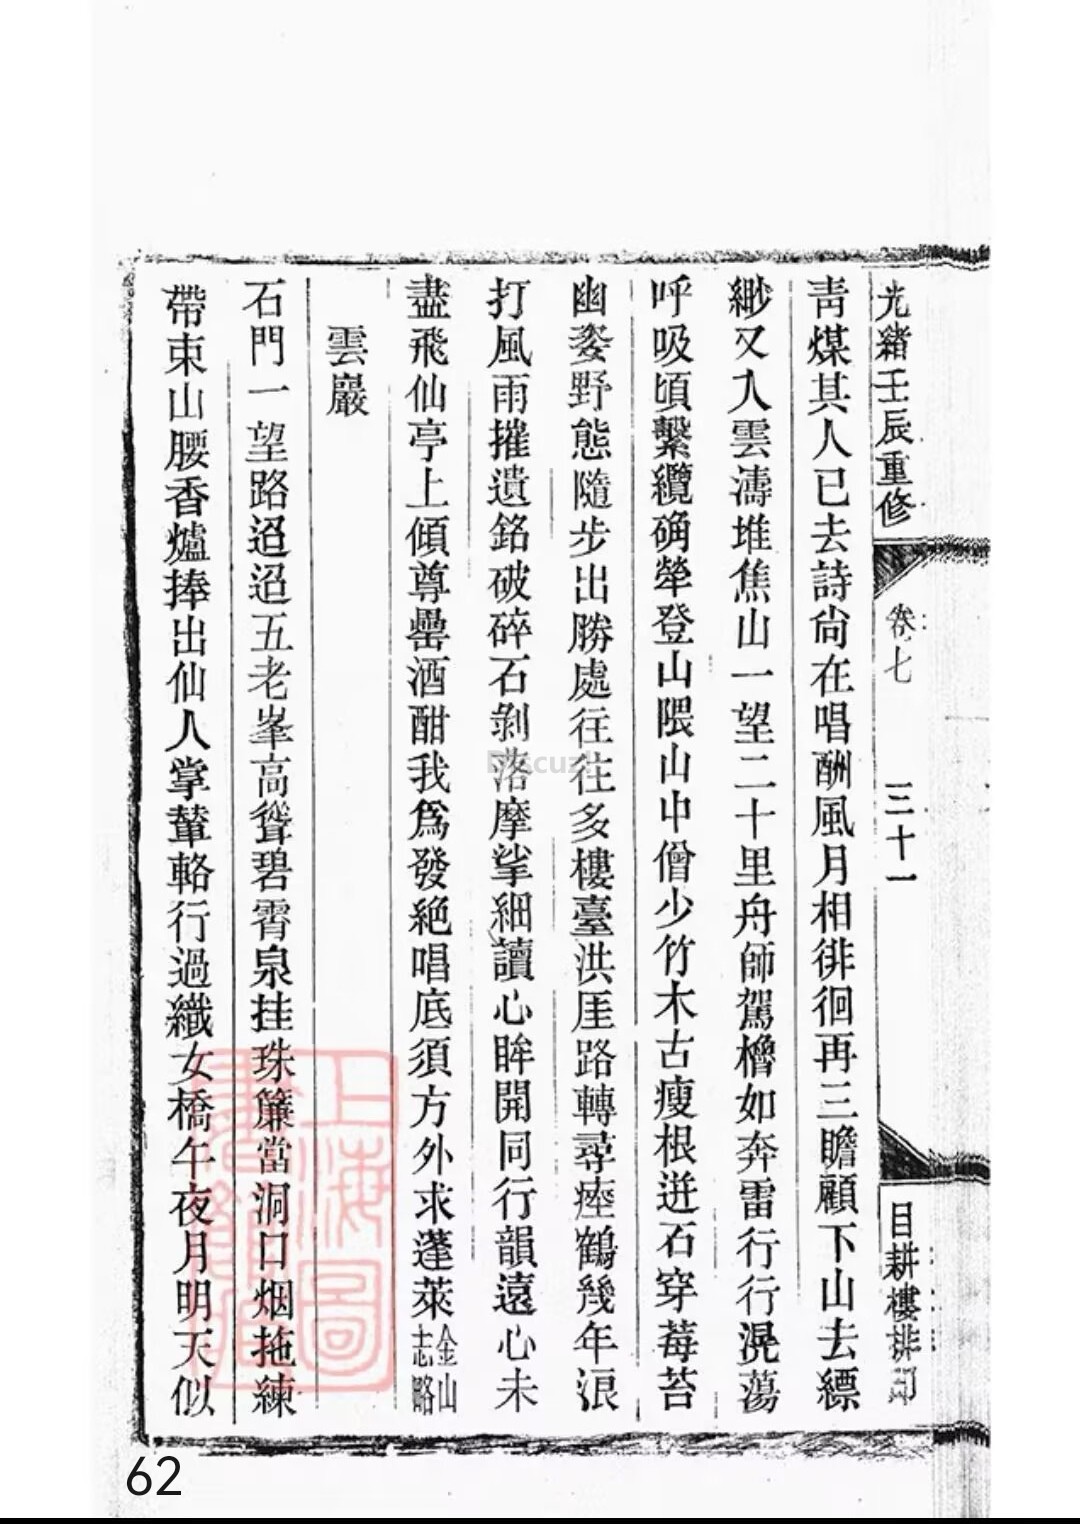 光緒壬辰重修
卷七
三十一
目耕樓排印
靑煤其人已去詩尙在唱酬風月相徘徊再三瞻顧下山去縹
緲又入雲濤堆焦山一望二十里舟師駕櫓如奔雷行行滉蕩
呼吸頃繫纜确犖登山隈山中僧少竹木古瘦根迸石穿莓苔
幽姿野態隨步出勝處往往多樓臺洪厓路轉尋瘞鶴幾年浪
打風雨摧遺銘破碎石剝落摩挲細讀心眸開同行韻遠心未
盡飛仙亭上傾尊罍酒酣我爲發絶唱底須方外求蓬萊金山志略
雲巖
石門一望路迢迢五老峯高聳碧霄泉挂珠簾當洞口烟拖練
帶束山腰香爐捧出仙人掌輦輅行過織女橋午夜月明天似
上海圖書館藏
Discuz!
62